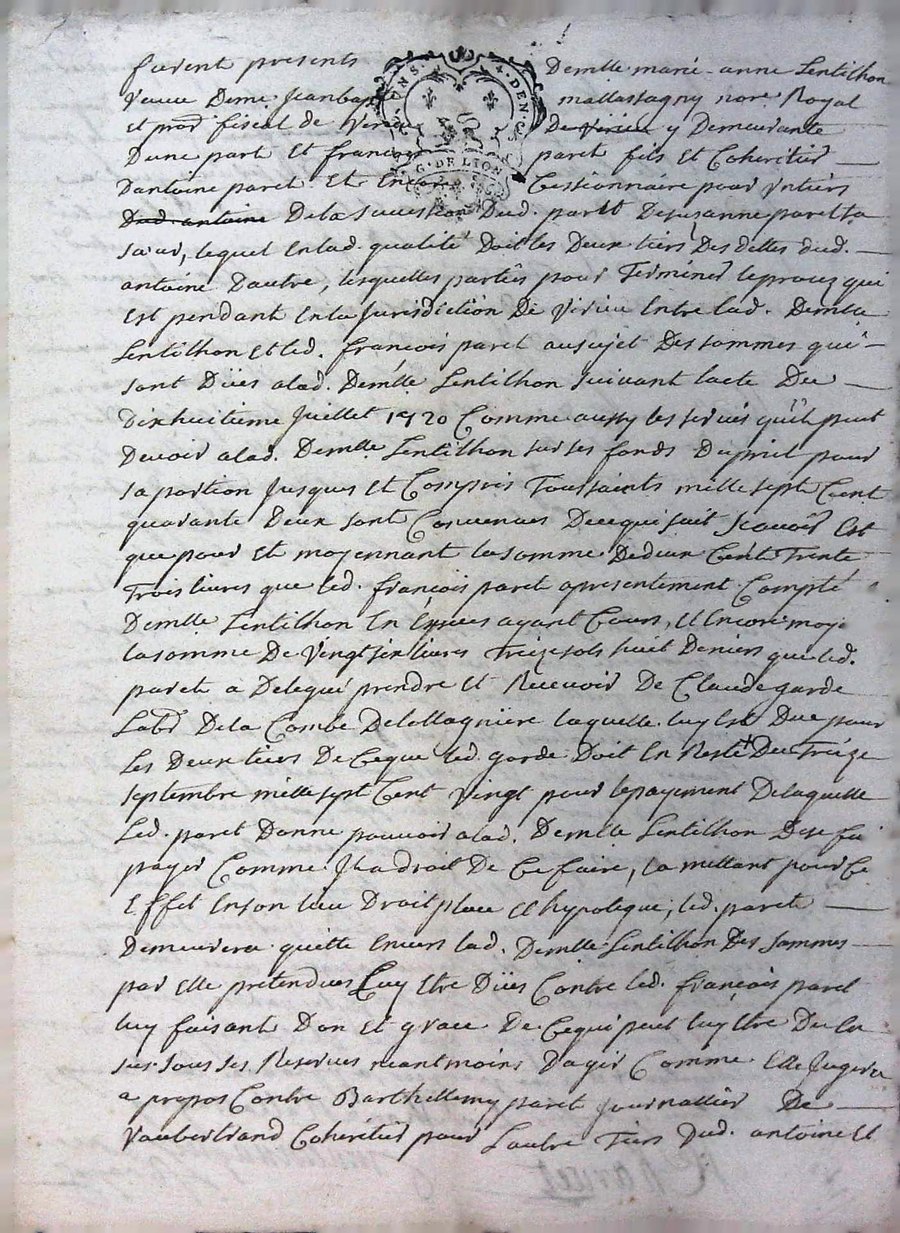 furent presents Demlle marie anne Lentilhon
veuve Demr Jeanbap mallassagny nore Royal
et procr fiscal de Virieu De Virieu y Demeurante
Dune part Et francois paret fils Et Coheritier
Dantoine paret Et Encore Cessionnaire pour Untiers
Dud. antoine Dela Succession Dud. paret De Suzanne paret sa
sœur, lequel En lad. qualité Doit les Deux tiers Des dettes dud.
antoine Dautre, lesquelles parties pour Terminer le procez qui
Est pendant En la Jurisdiction De Virieu Entre lad. Demlle
Lentilhon Et led. françois paret au sujet Des sommes qui
sont Dües alad. Demlle Lentilhon suivant lacte Du
Dixhuitieme Juillet 1720 Comme aussy les servis qu'il peut
Devoir alad. Demlle Lentilhon sur ses fonds Du pnit pour
sa portion Jusques Et Compris Toussaints mille sept Cent
quarante Deux sont Convenues De ce qui suit Scavoir Est
que pour Et moyennant la somme De deux Cent Trente
Trois livres que led. françois paret a presentement Compté
Demlle Lentilhon En Especes ayant Cours, Et Encore moye
la somme De Vingt six livres Treize sols huit Deniers que led.
paret a Delegué prendre Et Recevoir De Claude garde
Labr Dela Combe De laquelle luy Est Due pour
Les Deux tiers De Ce que led. garde Doit En Reste Du Treize
septembre mille sept Cent Vingt pour le payement De laquelle
Led. paret Donne pouvoir alad. Demlle Lentilhon De se fai
payer Comme Il a droit De Ce faire, la mettant pour Ce
Effet En son lieu Droit place Et hypoteque, led. paret
Demeurera quitte Envers lad. Demlle Lentilhon Des sommes
par Elle pretendues Luy Etre Dües Contre led. françois paret
luy faisant Don Et grace De Ce qui peut luy Etre Du
sous ses Reserves neantmoins Dagir Comme Elle Jugera
a propos Contre Barthellemy paret Journallier De
Vaubertrand Coheritier pour Lautre Tiers Dud. antoine Et
G. DE LYON